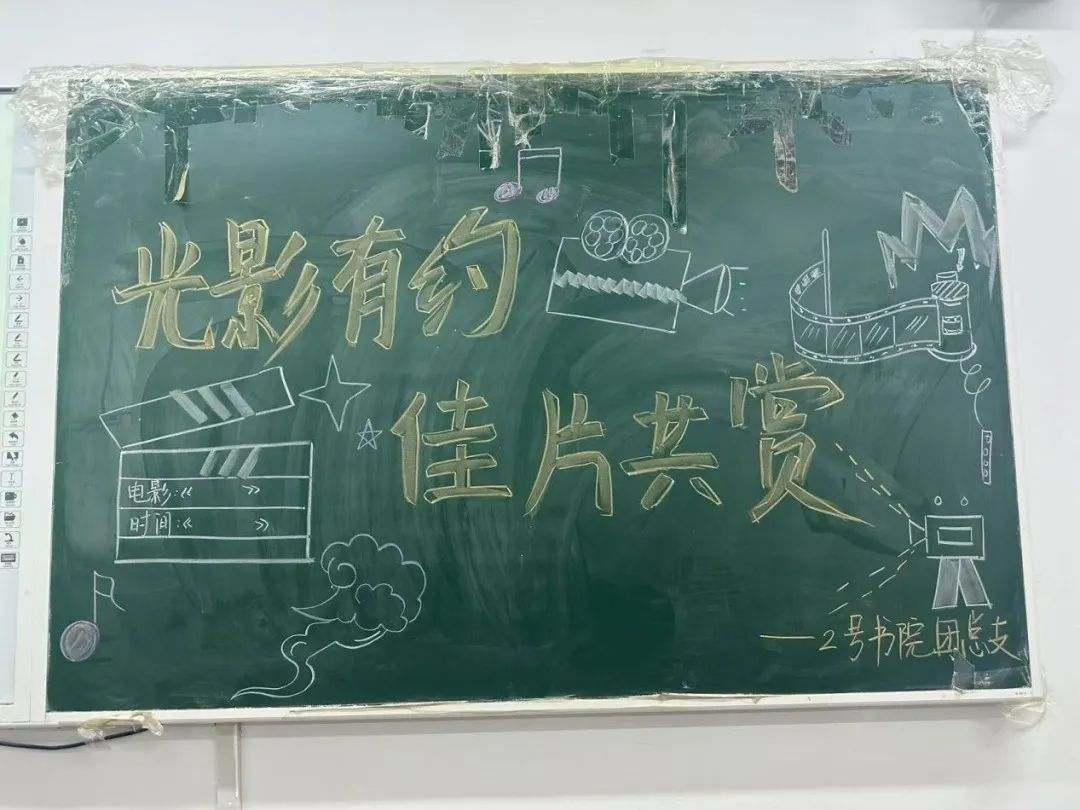 光影有约
佳片共赏
电影:《 》
时间:《 》
——2号书院团总支